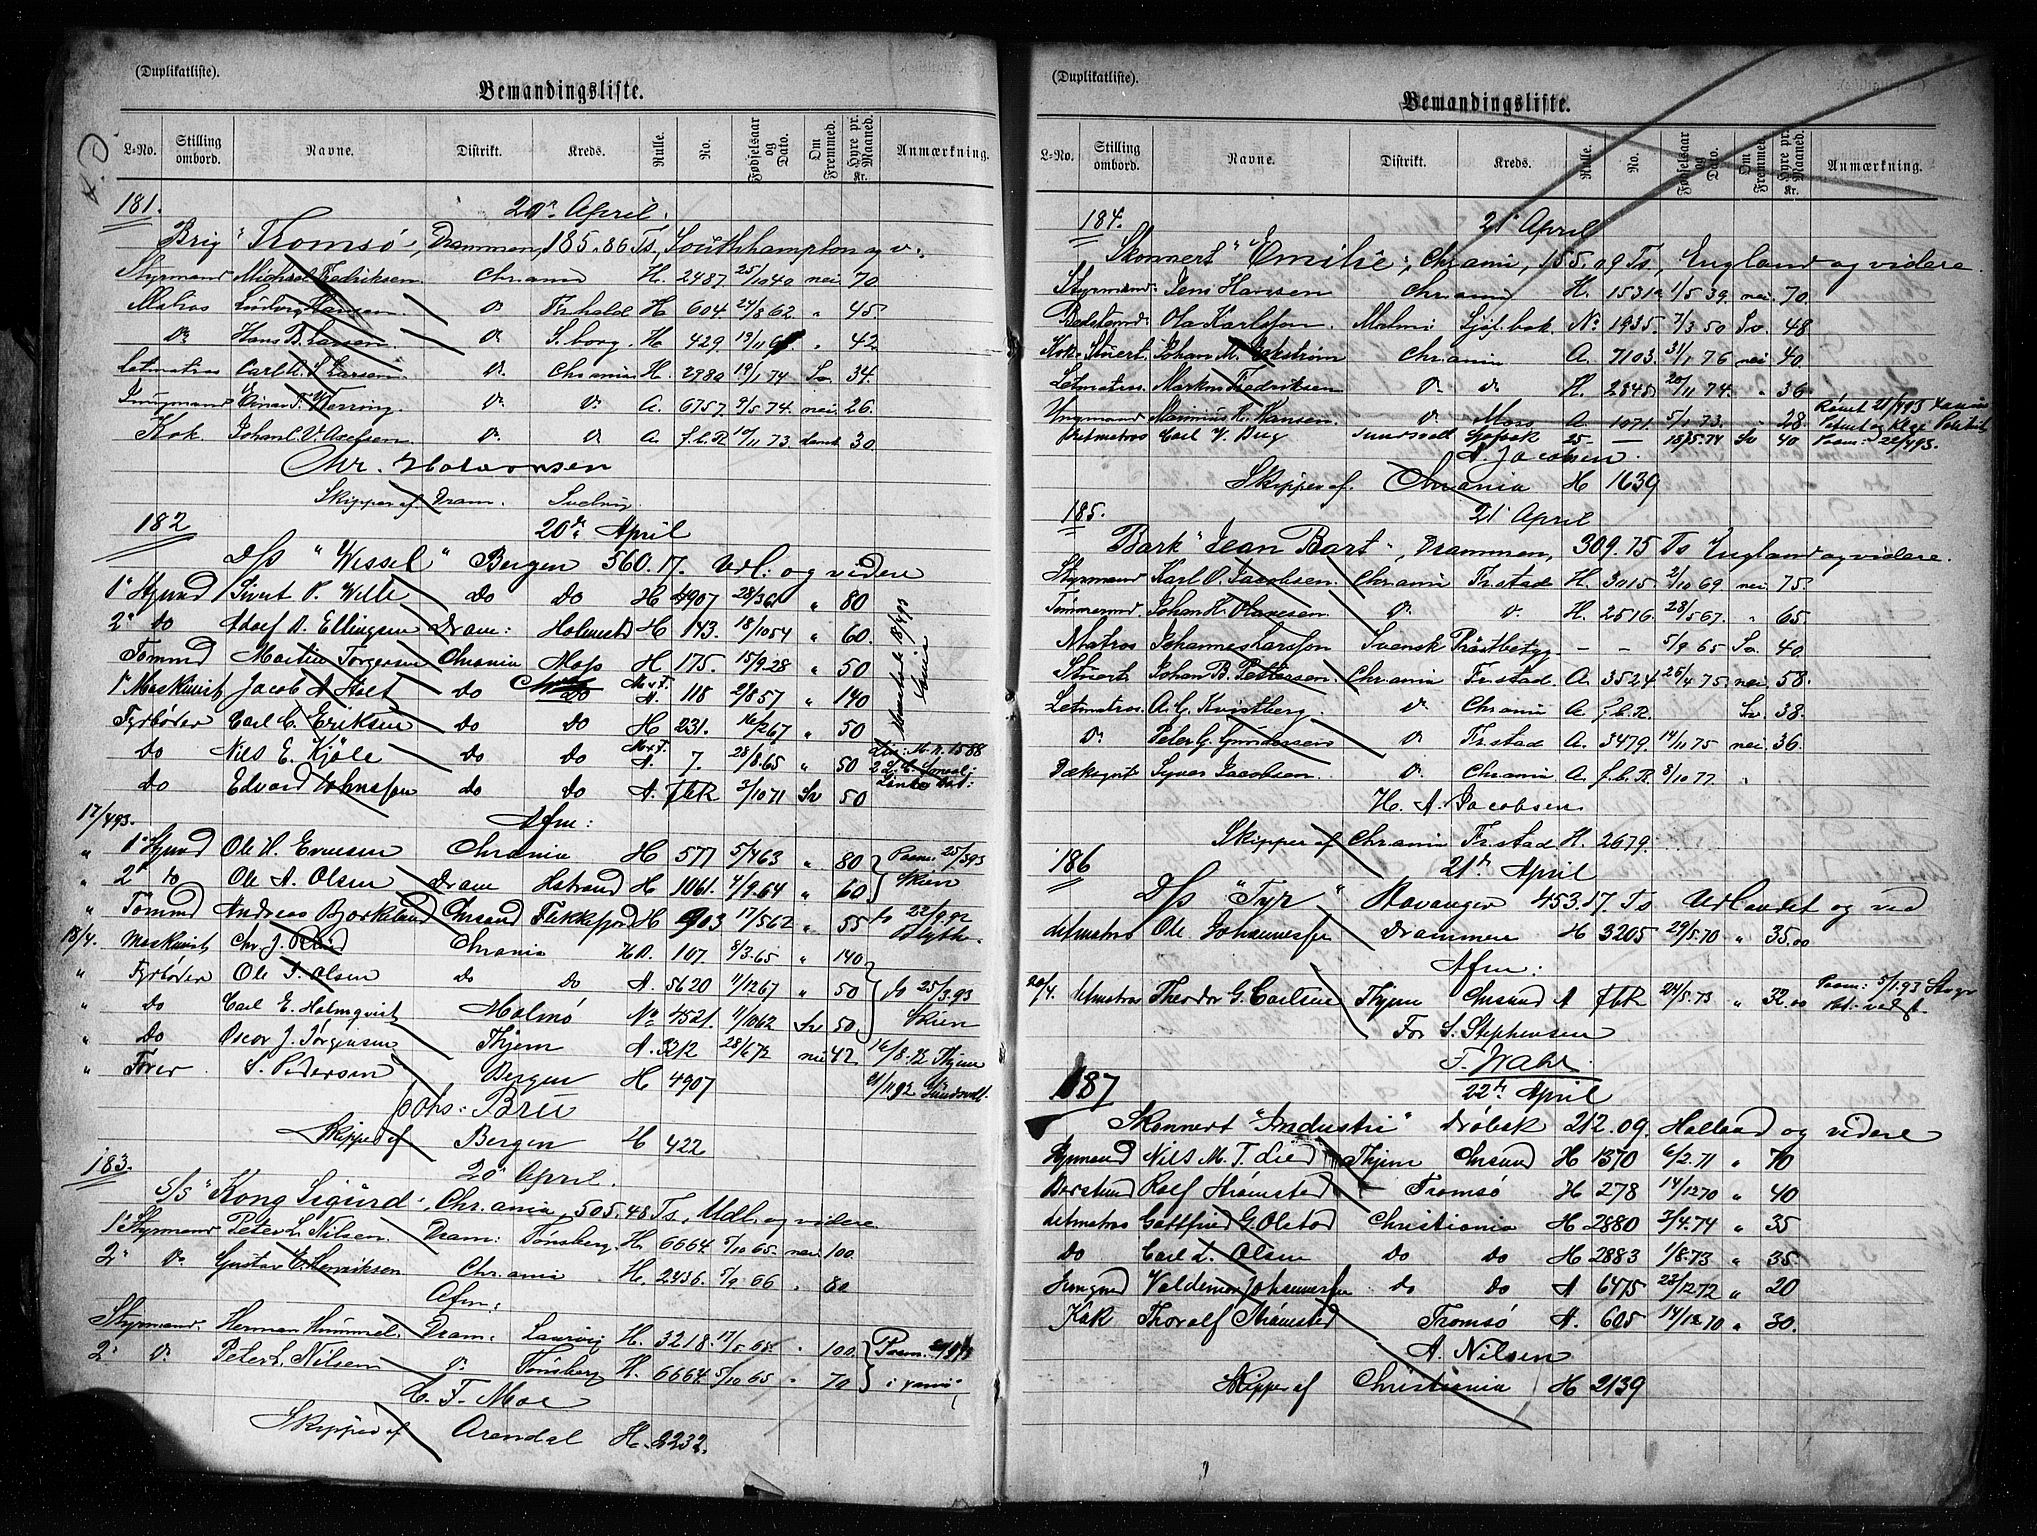 (Duplikatliste).
Bemandingsliste.
L-No. Stilling ombord. Navne. Distrikt. Kreds. Rulle. No. Fødselsaar og Dato. Om Fremmed. Hyre pr. Maaned. Kr. Anmærkning.
181. 20de April.
Brig "Tromsø", Drammen, 185.86 Ts, Southhampton og v.
Styrmand Michael Fredriksen Chrania H. 2487 25/10 40 nei 70
Matros Ludvig Hansen do Frhald H 604 24/8 62 " 45
Do Hans B. Larsen do S.borg H 429. " 42
Letmatros Carl A. S. Larsen Do Chrania H. 2980 19/1 74 Sv. 34.
Jungmand Einar T. Werring Do Do A. 6757 9/5 74. nei 26.
Kok Johan C. V. Axelsen Do Do A f.b.R. 10/11 73 dansk 30.
Chr. Halvorsen
Skipper af Dram. Svelvig
182 20de April
D/s "Wessel" Bergen 560.17. Udl: og videre
1ste Stymd Sivert P. Wille Do Do H 4907 28/3 61 " 80
2den do Adolf A. Ellingsen Dram: Holmestd H 143. 18/10 54 " 60.
Tømmd Martin Torgersen Chrania Moss H 175. 15/9.28 " 50
1ste Maskinist Jacob A Holt do do M.v.F. A. 118 2/8 57 " 140
Fyrbøder Carl C. Eriksen do do H 231. 16/2 67 " 50
Do Nils E. Kjøle do do M.v.F. A 7. 28/8.65 " 50
do Edvard Johnsson do do A. fbR 3/10 71 Sv 50
17/4 93. Afm:
" 1ste Stymd Ole H. Evensen Chrania H 577 5/4 63 " 80 Paam. 25/3 93
" 2den do Ole A. Olsen Dram Hstrand H 1061. 4/9.64 " 60 Skien
" Tømmd Andreas Bjorklund Chrsand Flekkefjord H 903 17/5 62 " 55 do 22/9.92 Blyth.
18/4. Maskinist Chr. J. Chrania H.A. 107. 8/3.65 " 140
" Fyrbøder Ole T. Olsen do Do A. 5620 11/12 67 " 50 do 25/3.93
" Do Carl E. Holmqvist Malmø No 4521. 11/10 62 Sv 50 Skien
" Do Oscar J. Jørgensen Thjem A. 3212 28/6 72 nei 42 16/8.92 Thjem
" Forer S. Pedersen Bergen H 4907 Sundsvall.
Johs: Bru
Skipper af Bergen H 422
183. 20de April.
S/S "Kong Sigurd", Chrania, 505.48 Ts, Udl. og videre
1ste Styrmand Peter L. Nilsen Dram: Tønsberg. H. 6664. 5/10 65. nei 100.
2den Do Gustav E. Henriksen Chrania H. 2436. 5/9.66 " 80
Afm:
Styrmand Herman Hummel. Dram: Laurvig H. 3218. 17/5.68. " 100. Paam.
2den Do Peter L. Nilsen do Tønsberg H. 6664. 5/10 65 " 70
C. F. Moe
Skipper af Arendal H. 2232.
(Duplikatliste).
Bemandingsliste.
L-No. Stilling ombord. Navne. Distrikt. Kreds. Rulle. No. Fødselsaar og Dato. Om Fremmed. Hyre pr. Maaned. Kr. Anmærkning.
184. 21de April
Skonnert "Emilie", Chrania, 155.09 Ts, England og videre.
Styrmand Jens Hansen Chrania H. 1531a 1/5 39. nei 70.
Bestmand Ola Karlsson. Malmø Sjöf.bok No 1935. 7/3 50 Sv. 48
Kok & Stuert Johan M. Ekstrøm Chrania A. 7103. 31/1 76 nei 40
Letmatros. Markus Fredriksen Do Do H. 2845 20/11 74. " 36
Ungmand Marinius H. Hansen. Do Moss A. 1071. 5/1 73. " 28
Letmatros Carl V. Sundsvall Sjöfbok 25 — Sv 40 Paam: 22/4 93.
A. Jacobsen.
Skipper af Chrania H 1639
185. 21de April
Bark "Jean Bart", Drammen, 309.75 Ts England og videre.
Styrmand Karl O. Jacobsen. Chrania Frstad H. 3015 2/10 69 nei 75.
Tømmermd Johan H. Olavesen. Do Do H. 2516. 28/5 67. " 65.
Matros Johannes Larsson Svensk Præstbetyg — — 5/9 65 Sv. 40
Stuert Johan B. Pettersen. Chrania Frstad A. 3524 26/4 75. nei 58.
Letmatros. A. G. Kvistberg. Do Chrania A. f.b.R. Sv. 38.
Do Peter G. Gundersen Do Frstad A. 3479. 14/11 75 nei 36.
Dæksgut Syver Jacobsen. Do Chrania A. f.b.R. 8/10 77. "
H. A. Jacobsen
Skipper af Chrania Frstad H. 2679.
186 21de April
D/s "Tyr" Stavanger 453.17. Ts Udlandet og vid
Letmatros Ole Johannesse Drammen H 3205 29/5.70 " 35.00
Afm:
20/4. Letmatros Theodor G. Carlsen Thjem Chrsund A fbR 24/5.73 " 32.00
For S. Stephensen
F. Wahl
187 22de April
Skonnert "Industri" Drøbak 212.09. Holland og videre
Stymand Nils M. T. Lied Thjem Chrsund H 1370 6/2.71 " 70
Bestmd Rolf Strømsted Tromsø H 278 14/12 70 " 40
Letmatros Gottfried G. Olstad Christiania H 2880 3/4.74 " 35
Do Carl L. Olsen Do Do H 2883 1/8.73 " 35.
Jungmd Valdemar Johannesse do do A 6475 23/12 72 " 20
Kok Thoralf Strømsted Tromsø A. 605 14/12 70 " 30.
A. Nilsen
Skipper af Christiania H 2139